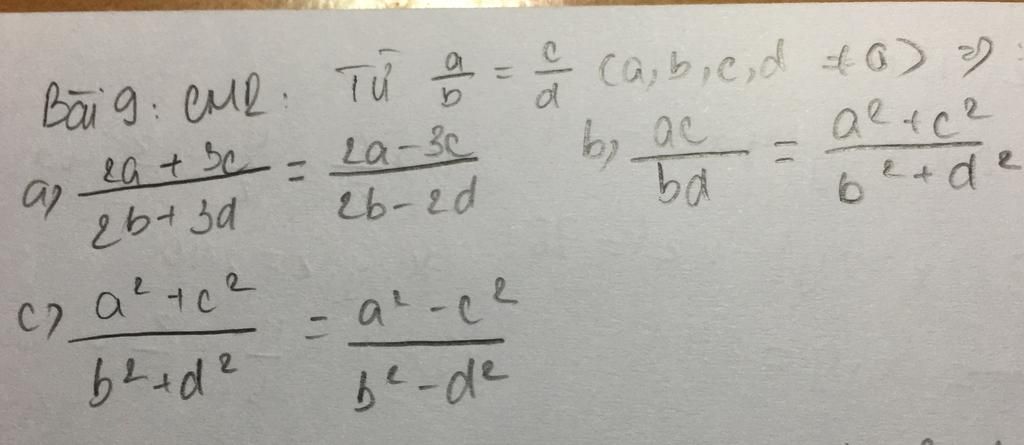 Bài 9: CMR: Từ a/b = c/d (a,b,c,d ≠ 0) ⇒ :
a, (2a + 3c)/(2b + 3d) = (2a - 3c)/(2b - 2d) b, ac/bd = (a² + c²)/(b² + d²)
c, (a² + c²)/(b² + d²) = (a² - c²)/(b² - d²)